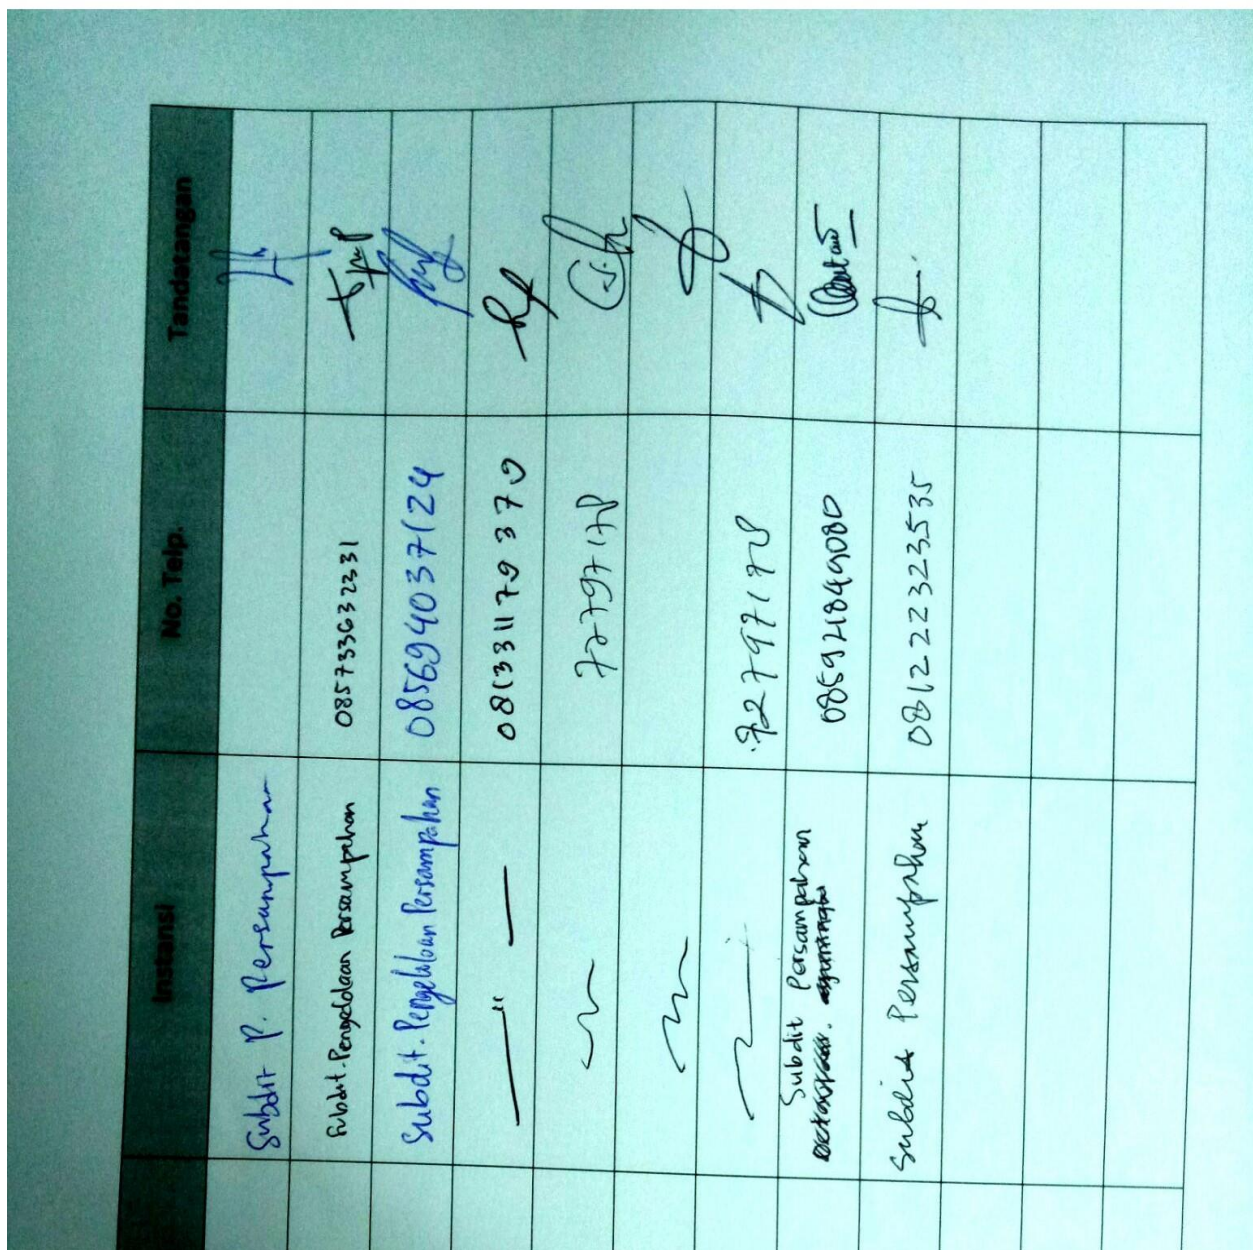 Instansi No. Telp. Tandatangan
Subdit P. Persampahan
Subdit. Pengelolaan Persampahan 085733632231
Subdit. Pengelolaan Persampahan 085694037124
— " — 081331179370
7279717P
72797178
Subdit Persampahan 085921849080
Subdit Persampahan 081222323535